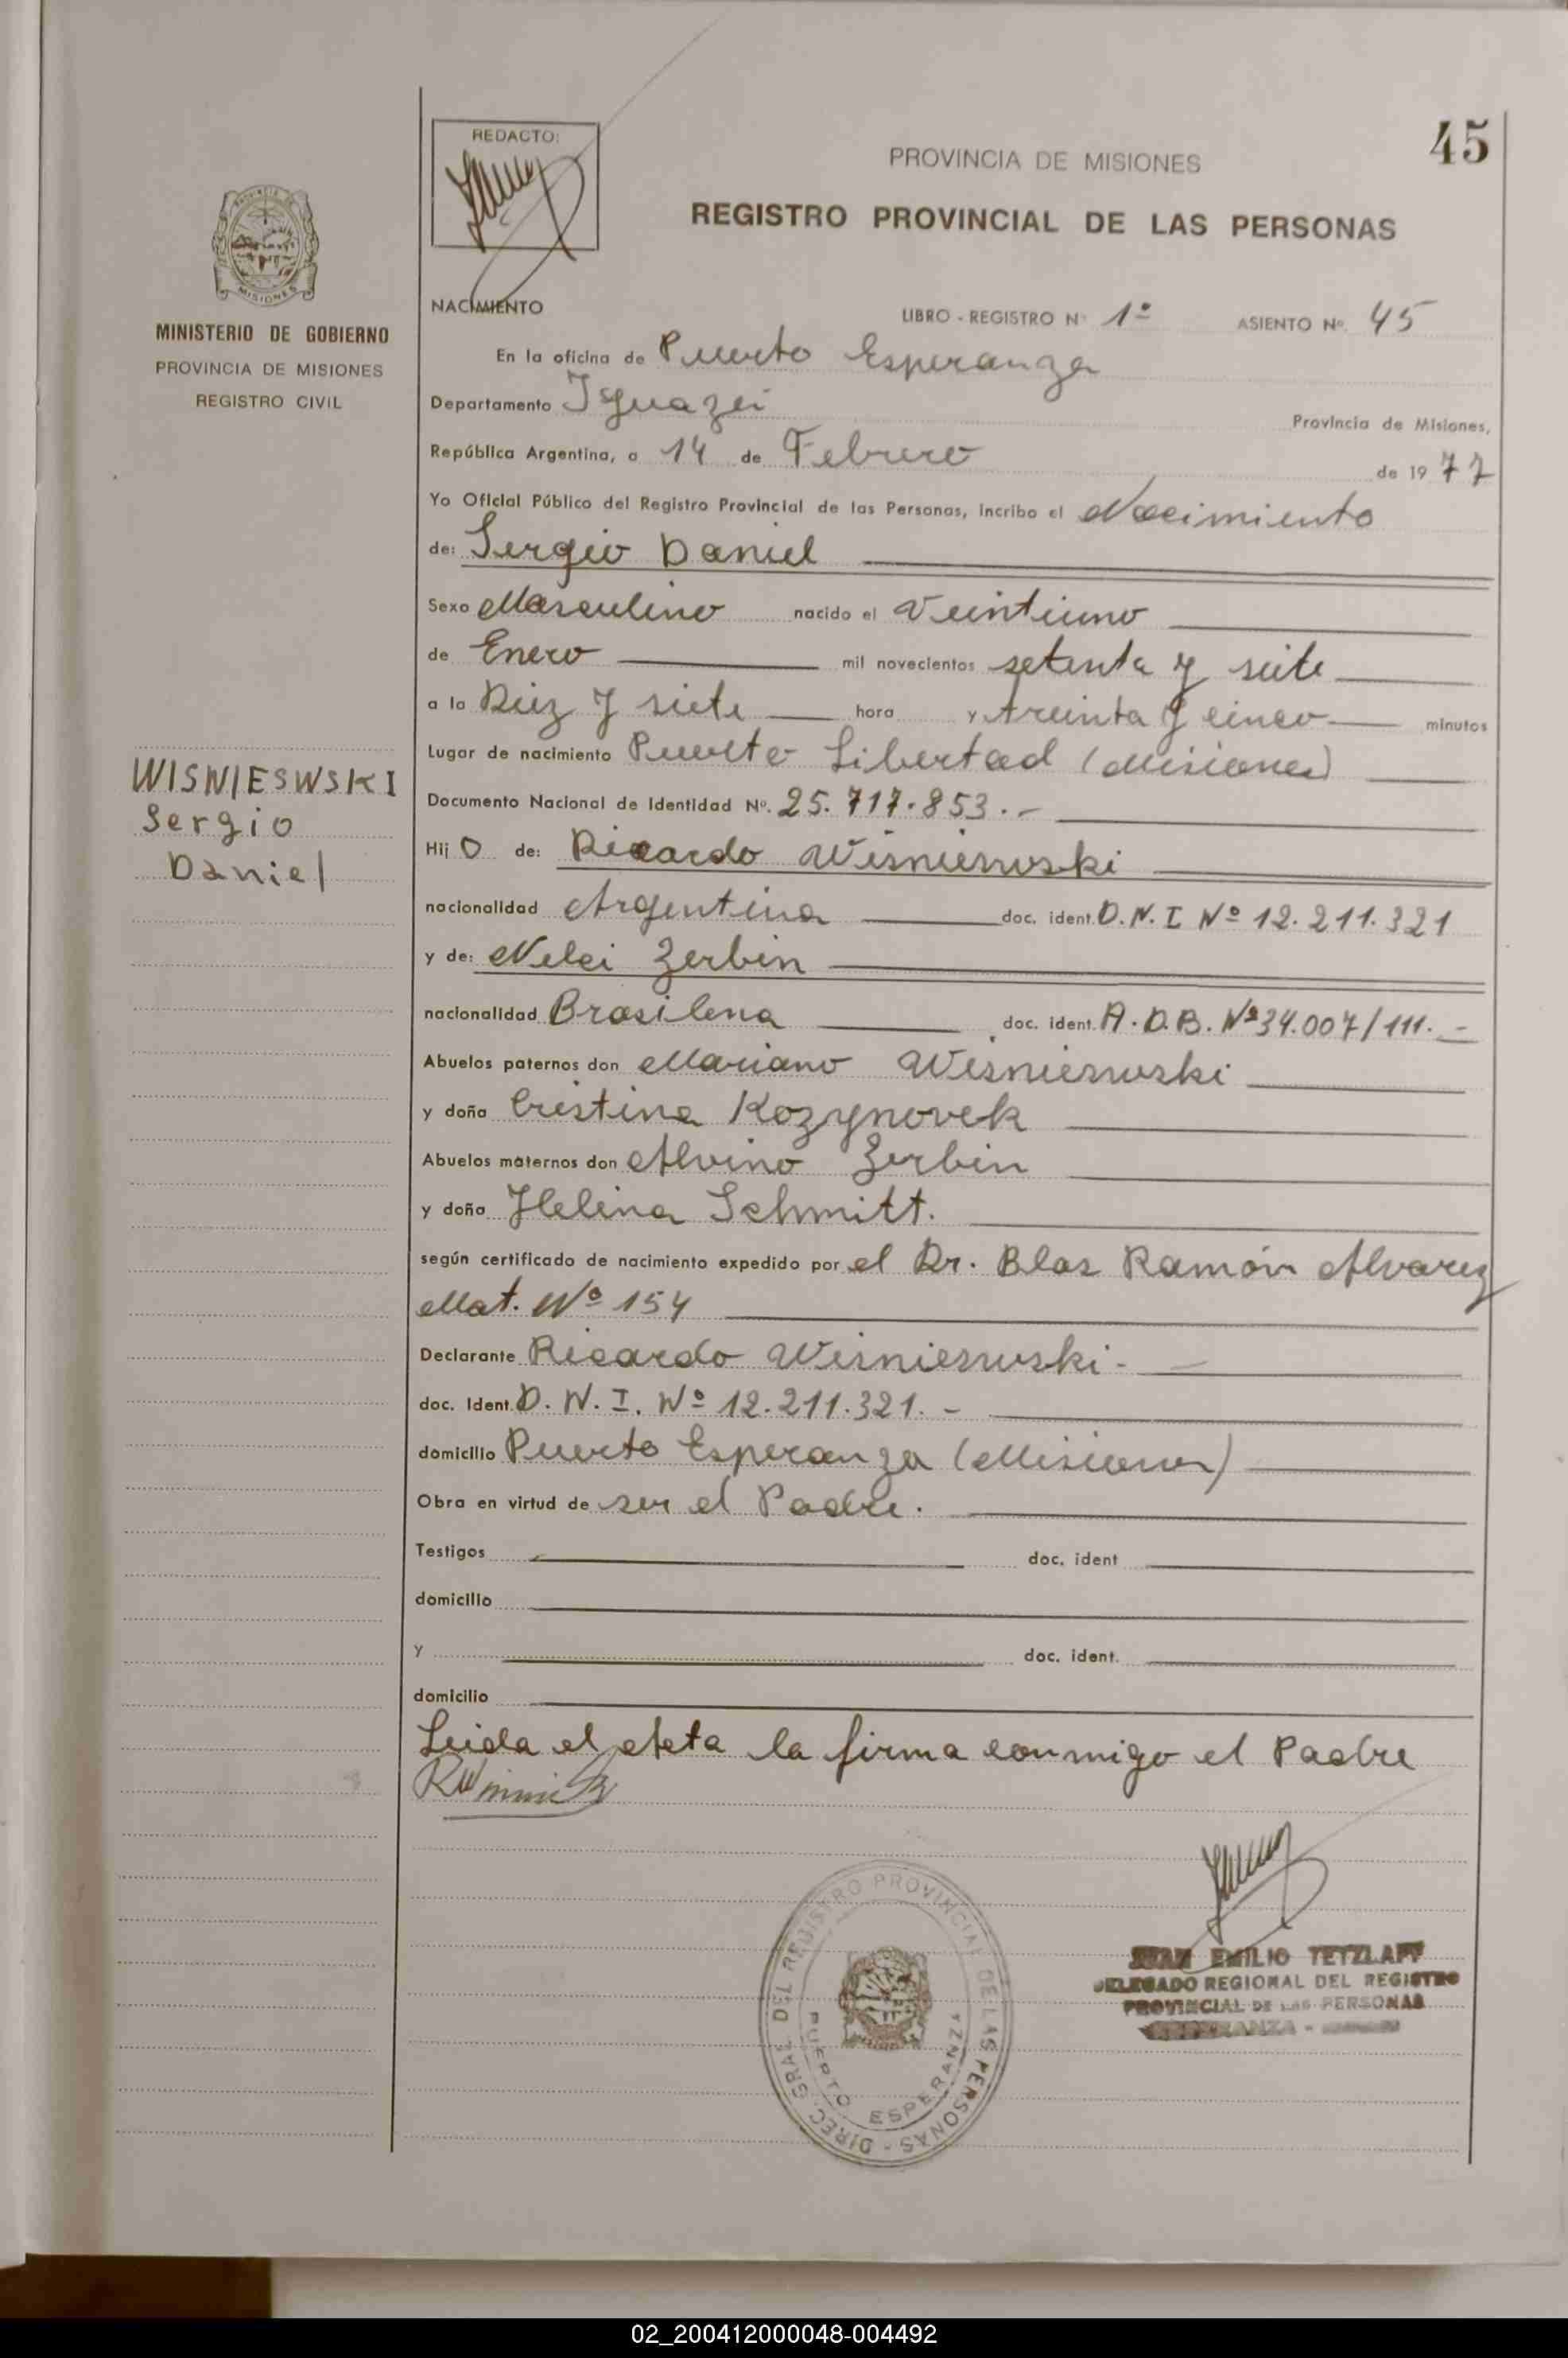 45
REDACTO:
PROVINCIA DE MISIONES
REGISTRO PROVINCIAL DE LAS PERSONAS
MISIONES
MINISTERIO DE GOBIERNO
PROVINCIA DE MISIONES
REGISTRO CIVIL
WISNIESWSKI
Sergio
Daniel
NACIMIENTO
LIBRO - REGISTRO Nº 1º ASIENTO Nº. 45
En la oficina de Puerto Esperanza
Departamento Iguazú Provincia de Misiones,
República Argentina, a 14 de Febrero de 1977
Yo Oficial Público del Registro Provincial de las Personas, incribo el Nacimiento
de: Sergio Daniel
Sexo Masculino nacido el Veintiuno
de Enero mil novecientos setenta y siete
a la Diez y siete hora y treinta y cinco minutos
Lugar de nacimiento Puerto Libertad (Misiones)
Documento Nacional de Identidad Nº. 25.717.853.-
Hij o de: Ricardo Wisnieswski
nacionalidad Argentina doc. ident. D.N.I Nº 12.211.321
y de: Nelci Zerbin
nacionalidad Brasilena doc. ident. A.D.B. Nº 34.007/111.-
Abuelos paternos don Mariano Wisnieswski
y doña Cristina Kozynovek
Abuelos maternos don Alvino Zerbin
y doña Helina Schmitt.
según certificado de nacimiento expedido por el Dr. Blas Ramón Alvarez
Mat. Nº 154
Declarante Ricardo Wisnieswski.-
doc. Ident. D.N.I. Nº 12.211.321.-
domicilio Puerto Esperanza (Misiones)
Obra en virtud de ser el Padre.
Testigos doc. ident
domicilio
y doc. ident.
domicilio
Leida el Acta la firma conmigo el Padre
DIREC. GRAL. DEL REGISTRO PROVINCIAL DE LAS PERSONAS -
PUERTO ESPERANZA
JUAN EMILIO TETZLAFF
DELEGADO REGIONAL DEL REGISTRO
PROVINCIAL DE LAS PERSONAS
ESPERANZA -
02_200412000048-004492